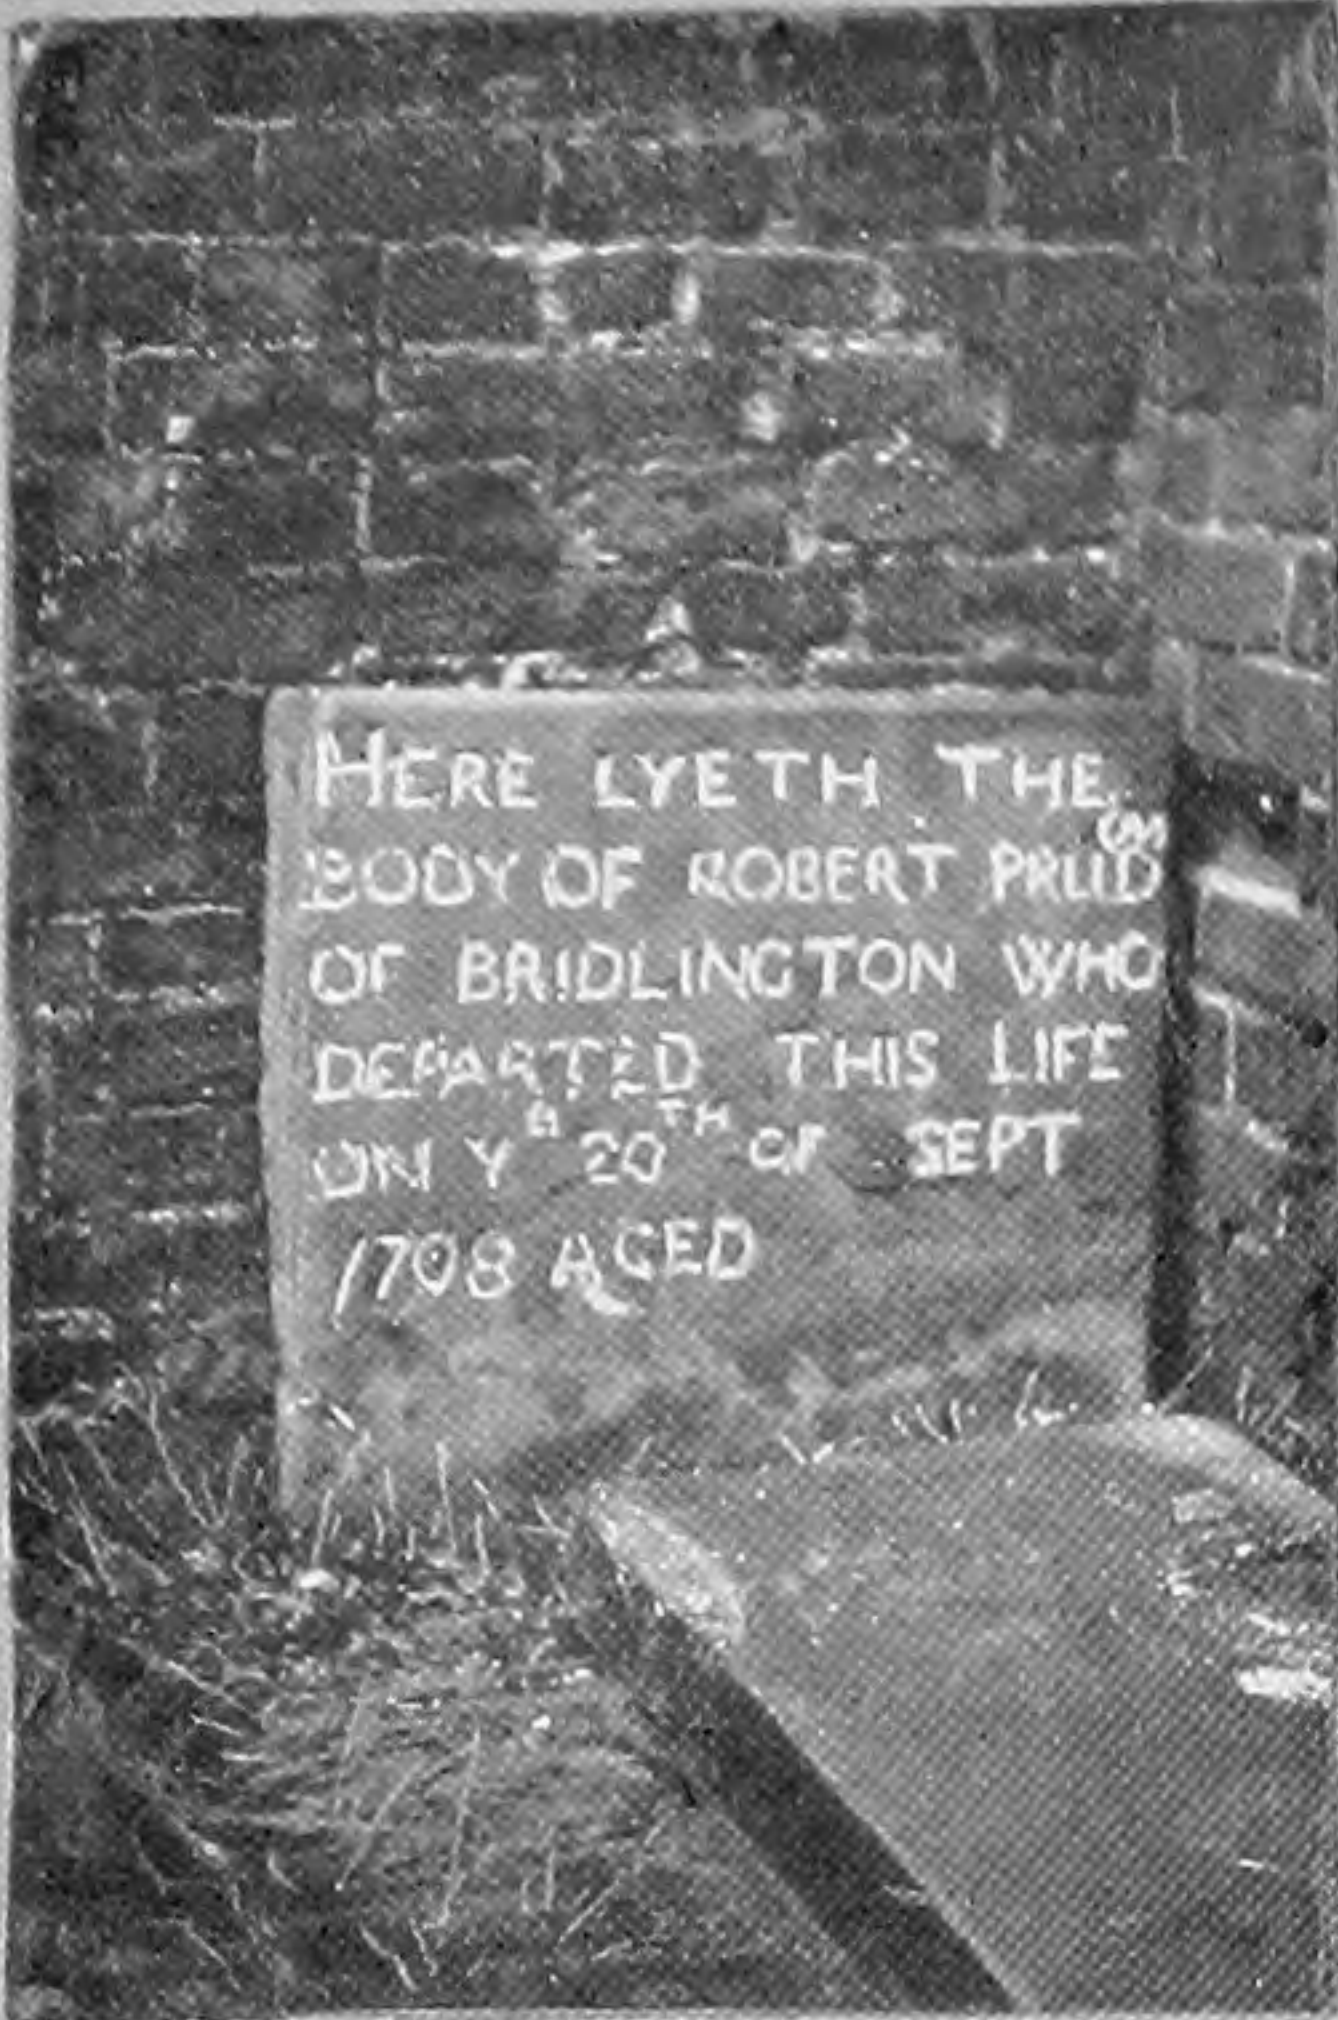 HERE LYETH THE
BODY OF ROBERT PRUD<sup>OM</sup>
OF BRIDLINGTON WHO
DEPARTED THIS LIFE
ON Y<sup>E</sup> 20<sup>TH</sup> OF SEPT
1708 AGED